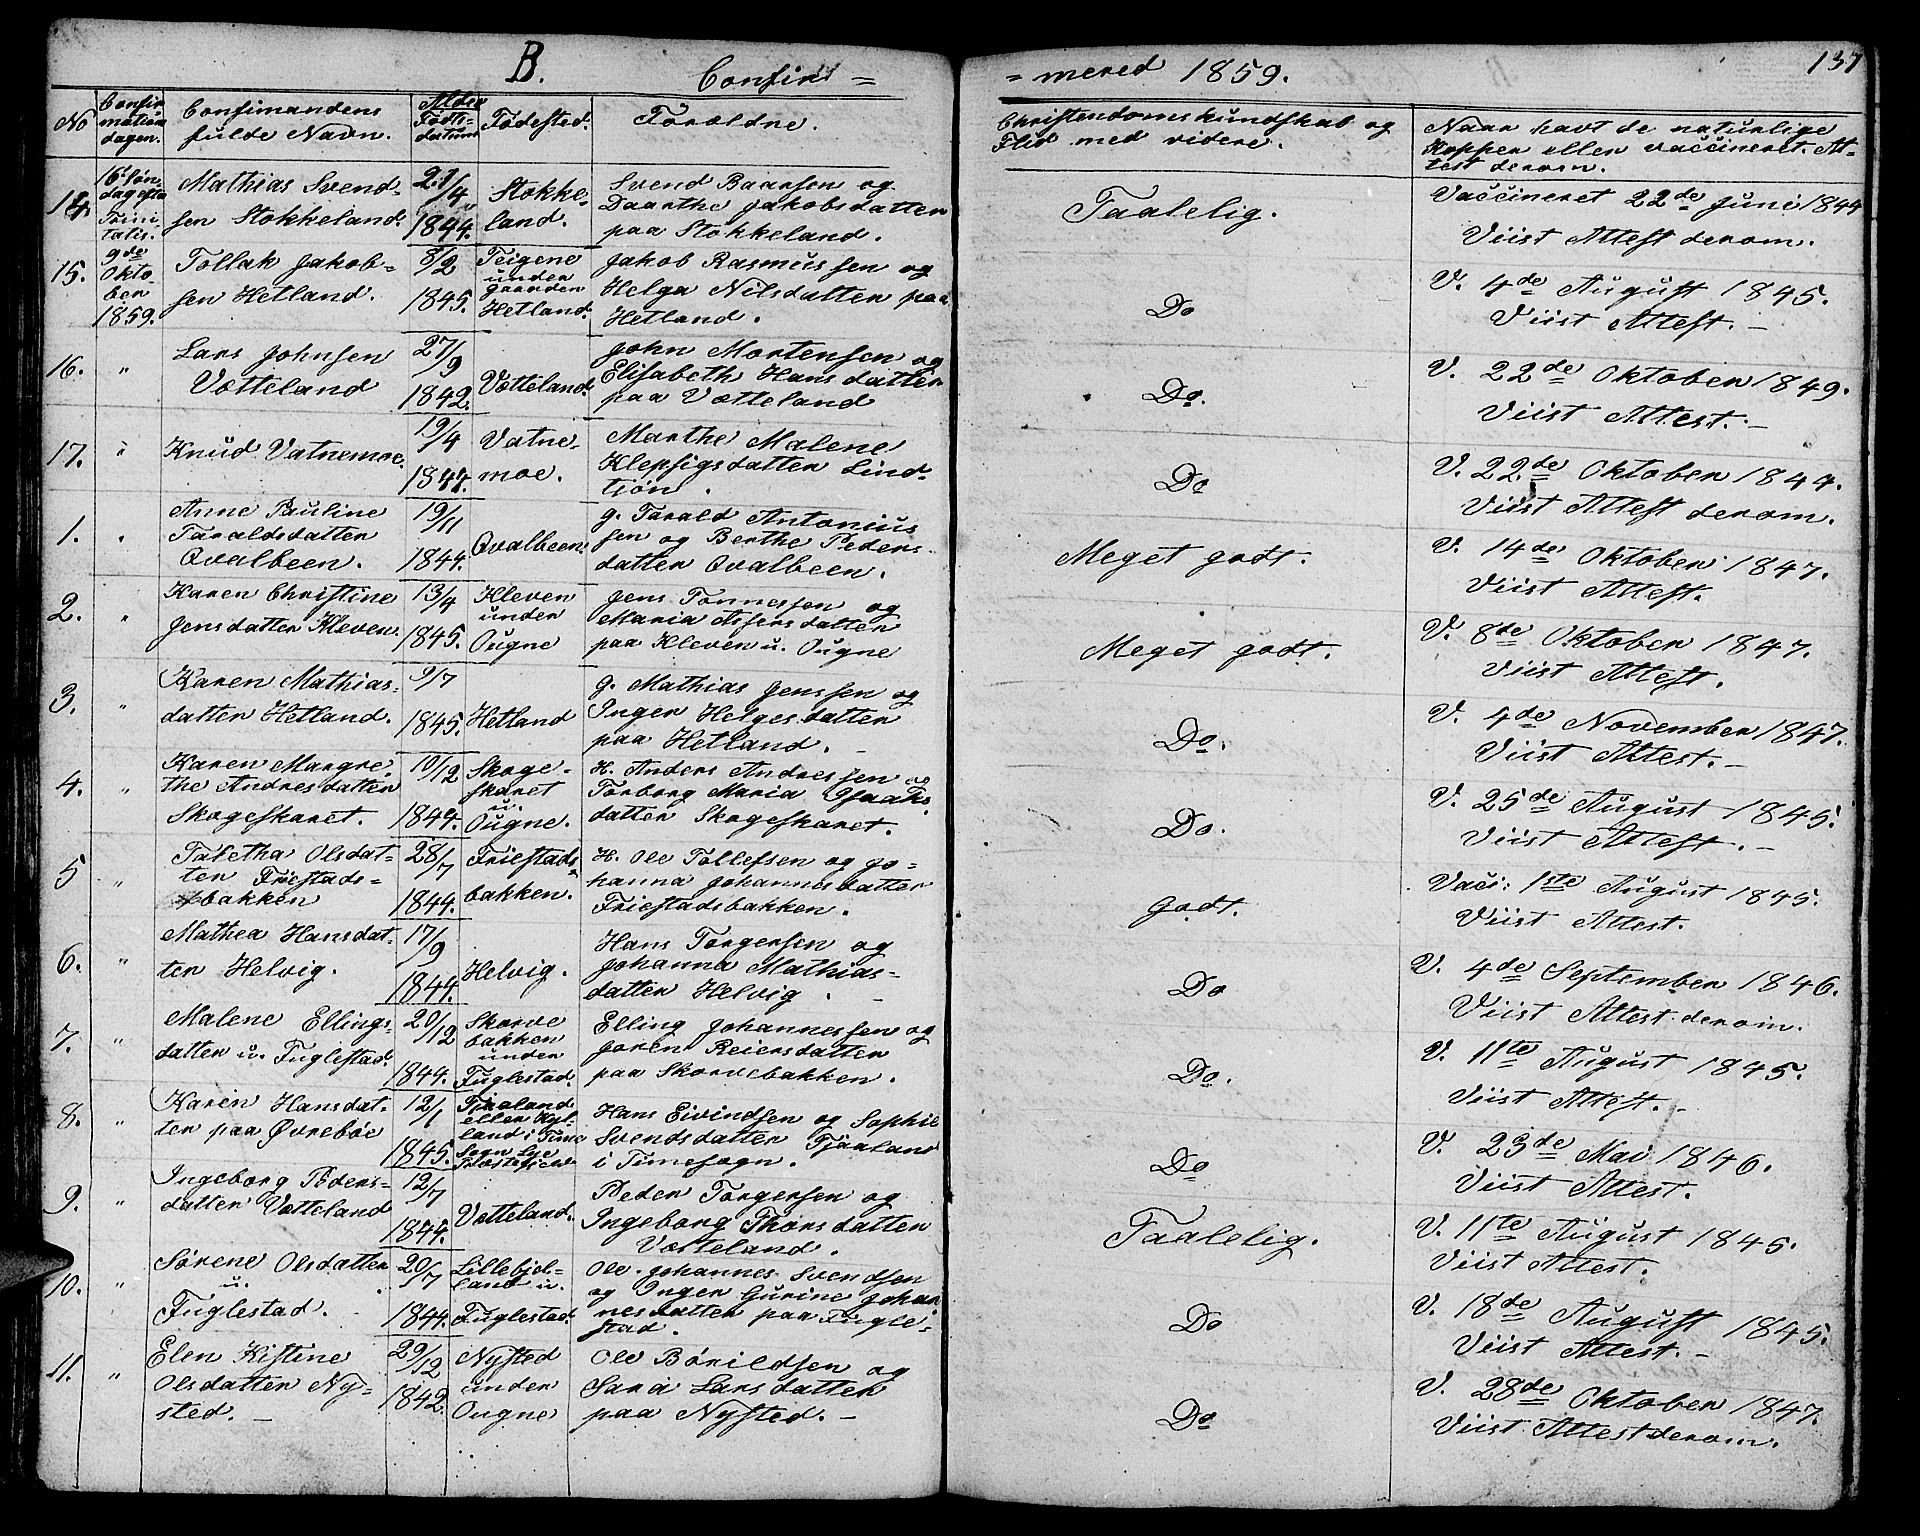 B. Confir=
=mered 1859. 137
No
Confir
mations
dagen.
Confirmandens
fulde Navn.
Alder
Fødts-
datum
Fødested.
Forældre.
Christendomskundskab og
Flid med videre.
Naar havt de naturlige
Kopper eller vaccineret. At=
test derom.
14.
16 Søn-
dag efter
Trini
tatis.
Mathias Svend-
sen Stokkeland.
21/4
1844.
Stokke-
land.
Svend Baarsen og
Daarthe Jakobsdatter
paa Stokkeland.
Taalelig.
Vaccineret 22de Juni 1844
Viist Attest derom.
15.
9de
Okto-
ber
1859.
Tollak Jakob-
sen Hetland.
8/2
1845.
Teigene
under
gaarden
Hetland.
Jakob Rasmussen og
Helga Nilsdatter paa
Hetland.
Do
V. 4de August 1845.
Viist Attest. -
16.
"
Lars Johnsen
Vætteland
27/9
1842.
Vætteland.
John Mortensen og
Elisabeth Hansdatter
paa Vætteland
Do.
V. 22de Oktober 1849.
Viist Attest. -
17.
"
Knud Vatnemoe.
19/4
1844.
Vatne-
moe.
Marthe Malene
Klepsigsdatter Lind-
tjøn.
Do
V. 22de Oktober 1844.
Viist Attest derom.
1.
"
Anne Pauline
Taraldsdatter
Qvalbeen.
19/11
1844.
Qvalbeen.
g. Tarald Antonius
sen og Berthe Peders-
datter Qvalbeen.
Meget godt.
V. 14de Oktober 1847.
Viist Attest.
2.
"
Karen Christine
Jensdatter Kleven.
13/4
1845.
Kleven
under
Ougne
Jens Tønnessen og
Maria Assersdatter
paa Kleven u. Ougne
Meget godt.
V. 8de Oktober 1847.
Viist Attest.
3.
"
Karen Mathias-
datter Hetland.
9/7
1845.
Hetland
g. Mathias Jenssen og
Inger Helgesdatter
paa Hetland. -
Do.
V. 4de November 1847.
Viist Attest. -
4.
"
Karen Margre-
the Andresdatter
Skogeskaret.
10/12
1844.
Skoge-
skaret
u.
Ougne.
H. Anders Andressen og
Torborg Maria Isaaks-
datter Skogeskaret.
Do.
V. 25de August 1845.
Viist Attest. -
5
"
Taletha Olsdat-
ter Friestads-
bakken
28/7
1844.
Friestads
bakken.
H. Ole Tollefsen og Jo-
hanna Johannesdatter
Friestadsbakken.
Godt.
Vacci: 1ste August 1845.
Viist Attest.
6.
"
Mathea Hansdat-
ter Helvig.
17/9
1844.
Helvig.
Hans Torgersen og
Johanna Mathias-
datter Helvig. -
Do
V. 4de September 1846.
Viist Attest derom.
7.
"
Malene Ellings-
datter u. Fuglestad.
20/12
1844.
Skorve
bakken
under
Fuglestad.
Elling Johannessen og
Joren Reiersdatter
paa Skorvebakken.
Do.
V. 11te August 1845.
Viist Attest. -
8.
"
Karen Hansdat-
ter paa Øvrebøe
12/1
1845.
Tjaaland
eller
land i Time
Sogn Lye
Præstegjeld
Hans Eivindsen og Sophie
Svendsdatter Tjaaland
i Timesogn.
Do
V. 23de Mai 1846.
Viist Attest.
9.
"
Ingeborg Peders-
datter Vætteland
12/7
1844.
Vætteland.
Peder Torgersen og
Ingeborg Thorsdatter
Vætteland.
Taalelig.
V. 11te August 1845.
Viist Attest.
10.
"
Sørene Olsdatter
u.
Fuglestad.
20/7
1844.
Lillebjel-
land u.
Fuglestad.
Ole Johannes Svendsen
og Inger Gurine Johan
nesdatter paa Fugle-
stad.
Do
V. 18de August 1845.
Viist Attest. -
11.
"
Elen Kistine
Olsdatter Ny-
sted. -
29/12
1842.
Nysted
under
Ougne
Ole Børildsen og
Sara Larsdatter
paa Nysted. -
Do
V. 28de Oktober 1847.
Viist Attest derom.